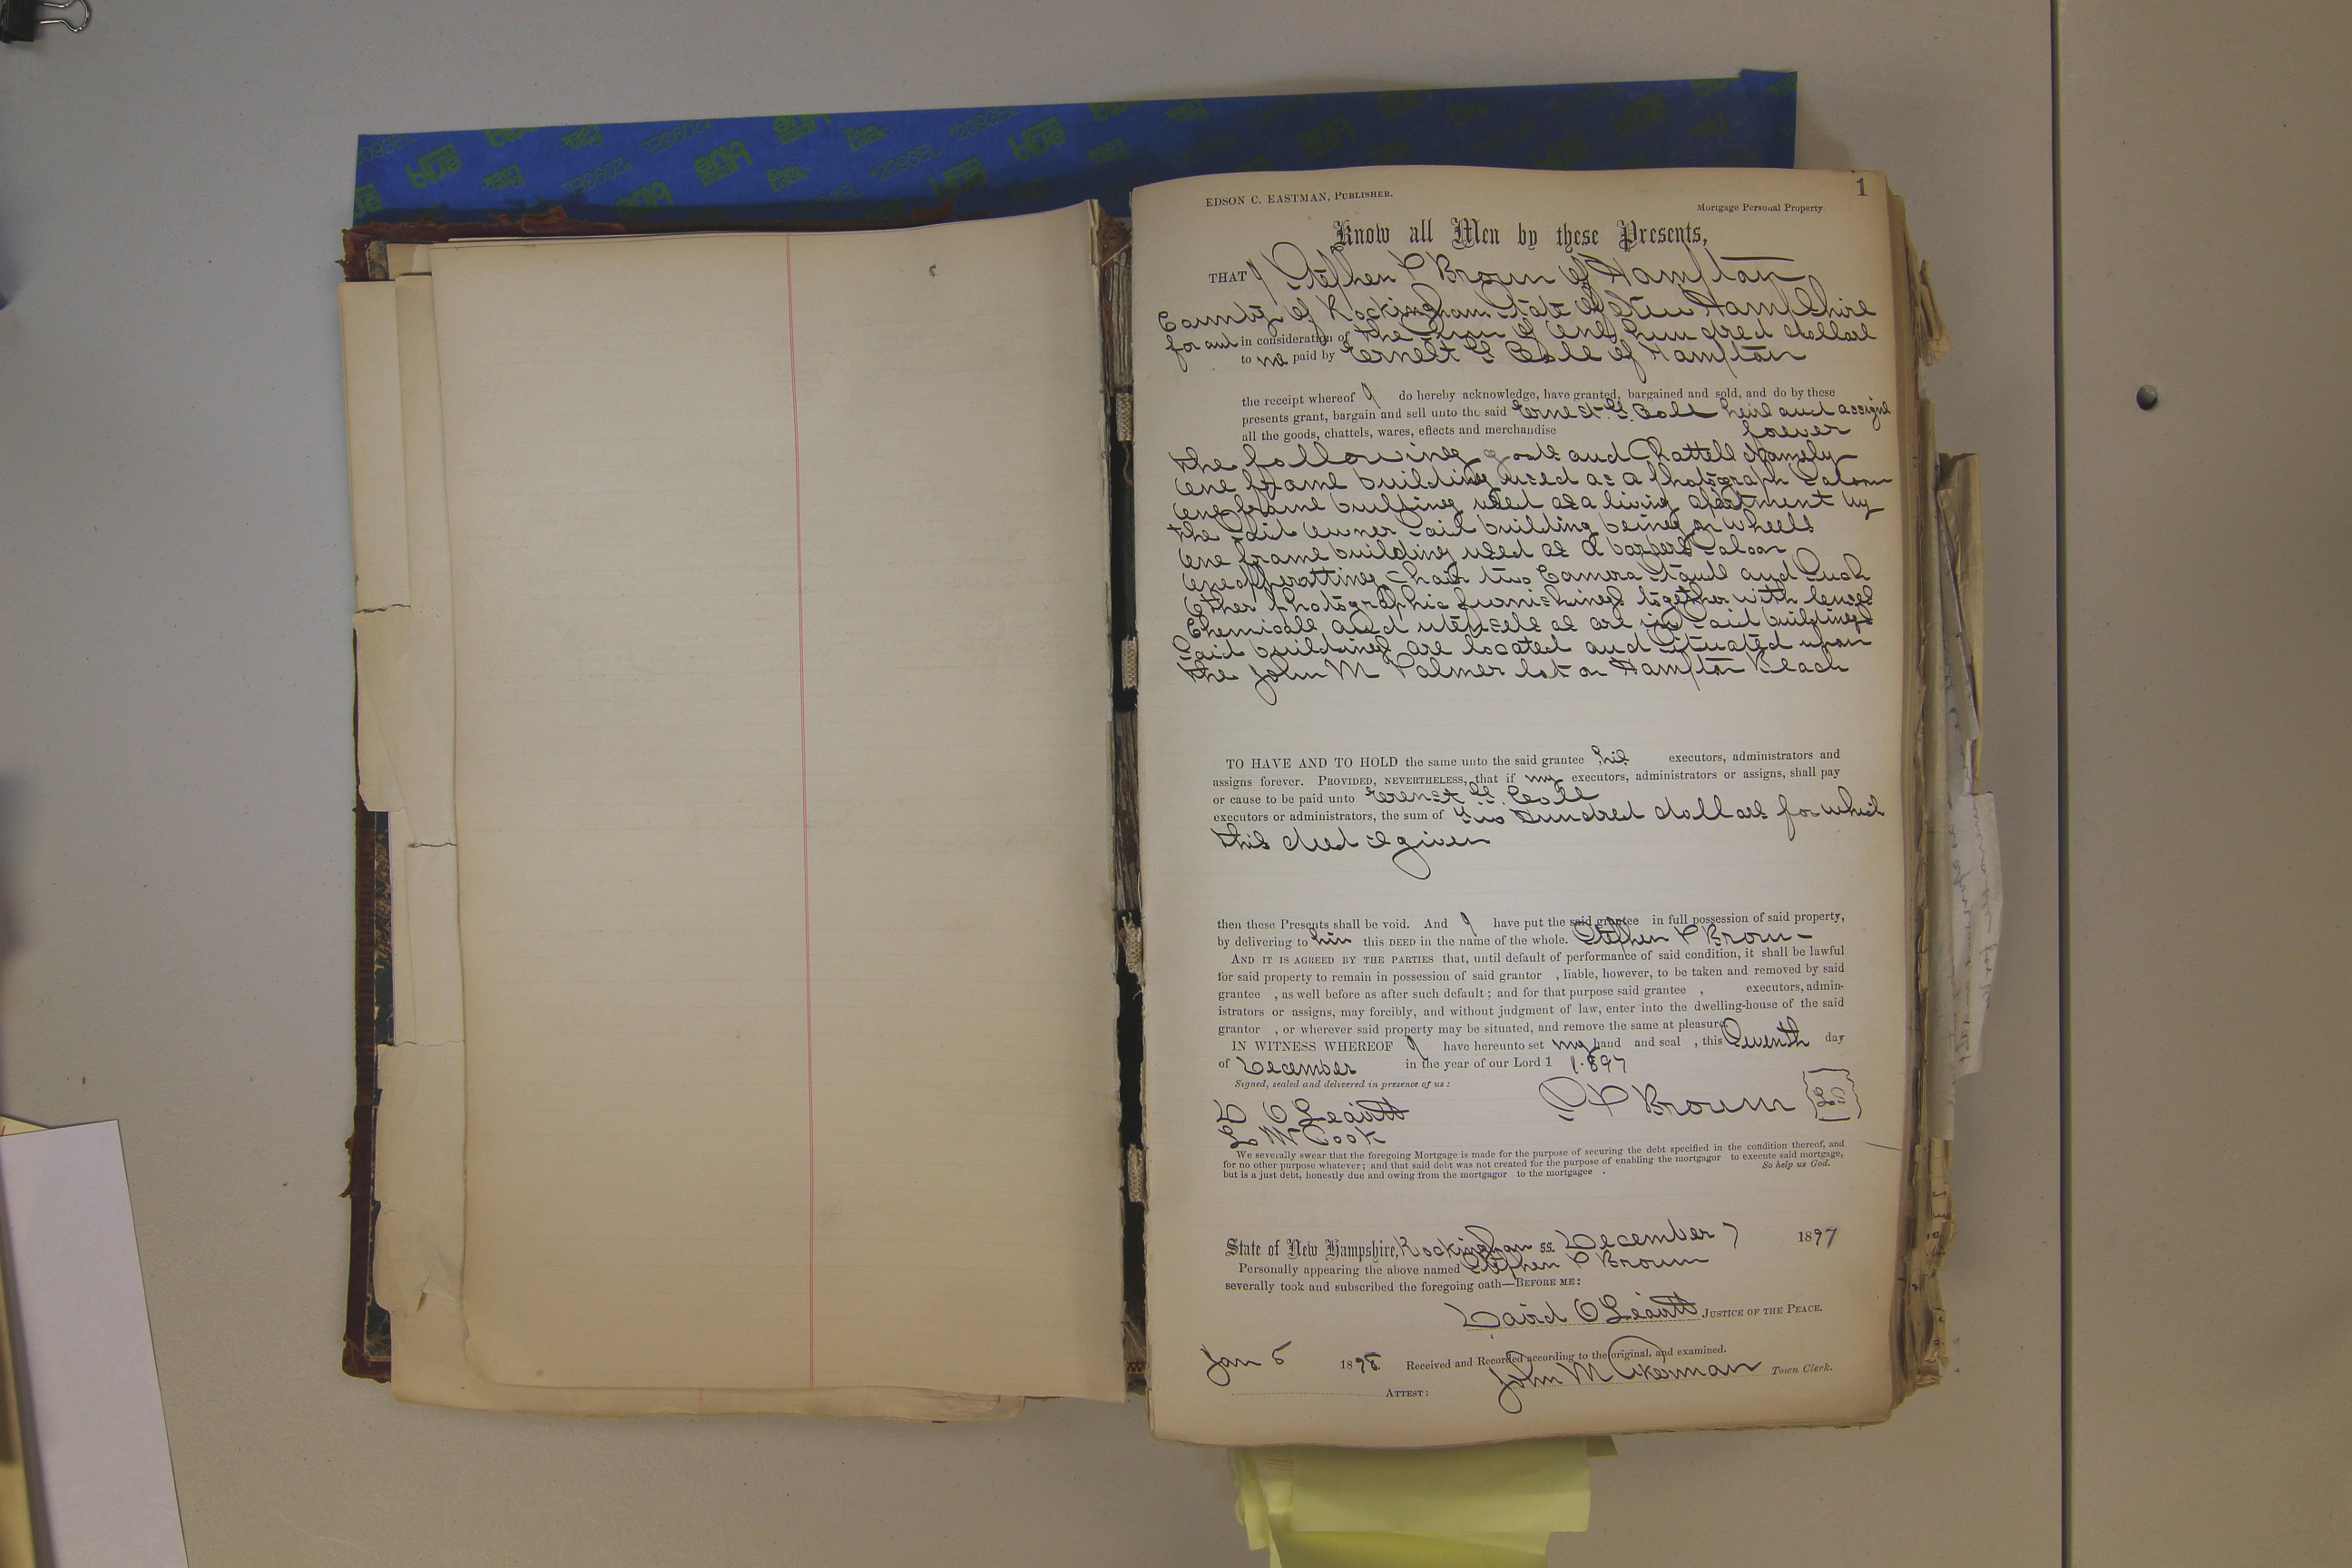 1
EDSON C. EASTMAN, PUBLISHER.
Mortgage Personal Property.
Know all Men by these Presents,
THAT I Stephen P Brown of Hampton
County of Rockingham State of New Hampshire
for and in consideration of the Sum of One hundred dollars
to me paid by Ernest G Cole of Hampton
the receipt whereof I do hereby acknowledge, have granted, bargained and sold, and do by these
presents grant, bargain and sell unto the said Ernest G. Cole heirs and assigns
all the goods, chattels, wares, effects and merchandise forever
the following goods and Chattels Namely
One frame building used as a Photograph Saloon
One frame building used as a living apartment by
the Said Owner Said building being on wheels
One frame building used as a barbers Saloon
One opperatting Chair two Camera Stands and Such
Other Photographic furnishings together with lenses
Chemicals and utensels as are in Said buildings
Said buildings are located and Situated upon
the John M Palmer lot on Hampton Beach
TO HAVE AND TO HOLD the same unto the said grantee his executors, administrators and
assigns forever. PROVIDED, NEVERTHELESS, that if my executors, administrators or assigns, shall pay
or cause to be paid unto Ernest G. Cole
executors or administrators, the sum of Two Hundred dollars for which
this deed is given
then these Presents shall be void. And I have put the said grantee in full possession of said property,
by delivering to him this DEED in the name of the whole. Stephen P Brown
AND IT IS AGREED BY THE PARTIES that, until default of performance of said condition, it shall be lawful
for said property to remain in possession of said grantor , liable, however, to be taken and removed by said
grantee , as well before as after such default; and for that purpose said grantee , executors, admin-
istrators or assigns, may forcibly, and without judgment of law, enter into the dwelling-house of the said
grantor , or wherever said property may be situated, and remove the same at pleasure.
IN WITNESS WHEREOF I have hereunto set my hand and seal , this Seventh day
of December in the year of our Lord 1 1897
Signed, sealed and delivered in presence of us:
D O Leavitt
S P Brown LS
L M Cook
We severally swear that the foregoing Mortgage is made for the purpose of securing the debt specified in the condition thereof, and
for no other purpose whatever; and that said debt was not created for the purpose of enabling the mortgagor to execute said mortgage,
but is a just debt, honestly due and owing from the mortgagor to the mortgagee . So help us God.
State of New Hampshire, Rockingham ss. December 7 1897
Personally appearing the above named Stephen P Brown
severally took and subscribed the foregoing oath—BEFORE ME:
David O Leavitt JUSTICE OF THE PEACE.
Jan 5 1898 Received and Recorded according to the original, and examined.
ATTEST: John M Akerman Town Clerk.